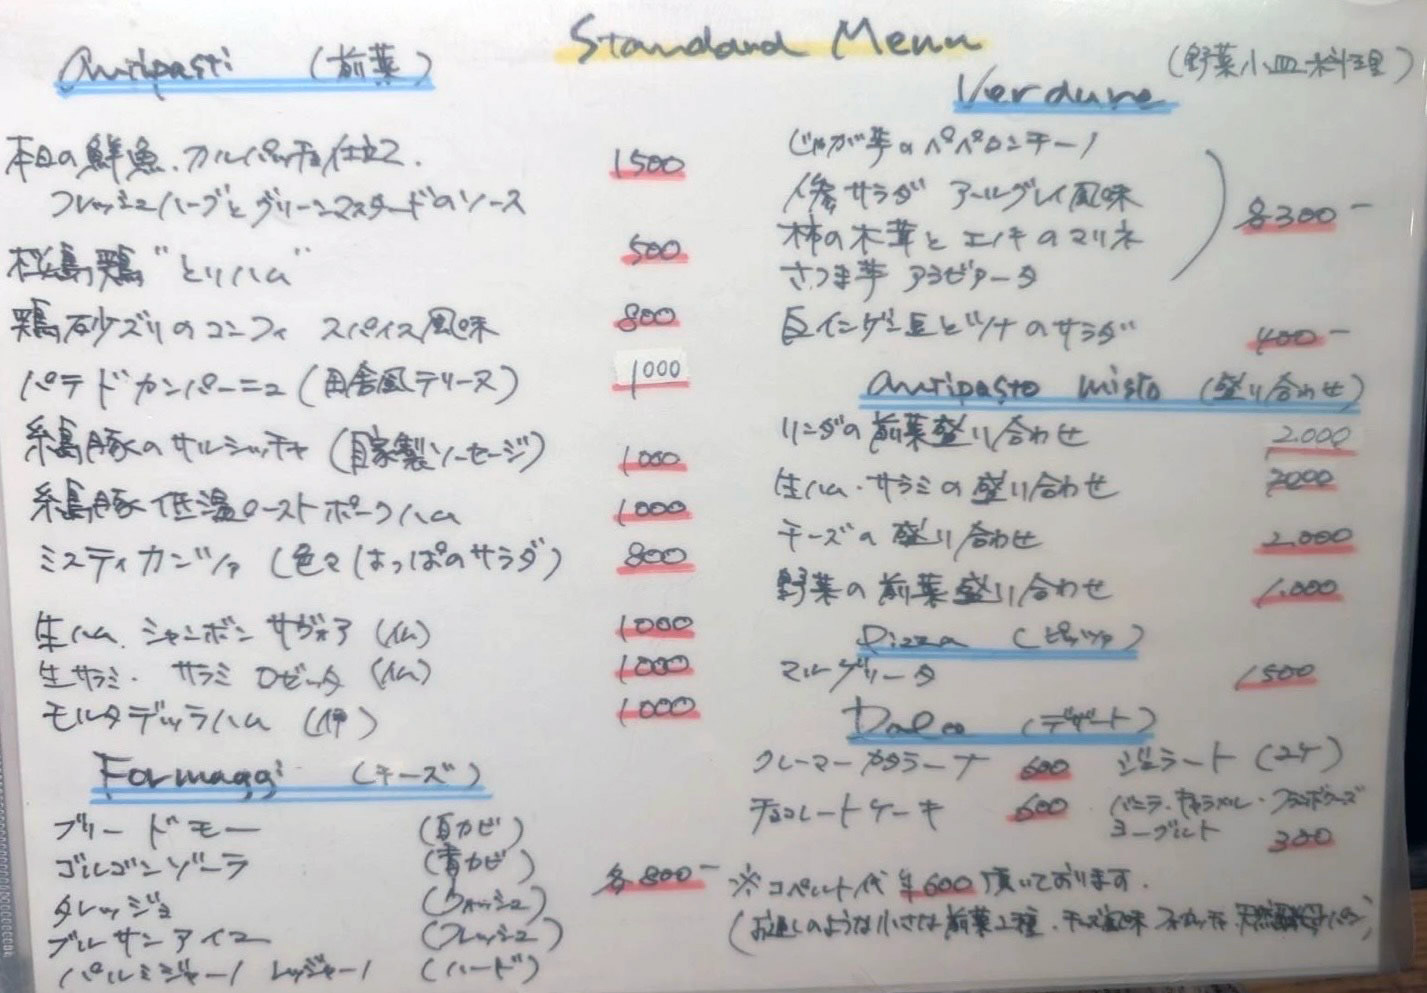 Standard Menu
Antipasti (前菜)
本日の鮮魚.カルパッチョ仕立て. 1500
フレッシュハーブとグリーンマスタードのソース
松島鶏"とりハム" 500
鶏砂ズリのコンフィ スパイス風味 800
パテ ド カンパーニュ (田舎風テリーヌ) 1000
糸島豚のサルシッチャ (自家製ソーセージ) 1000
糸島豚 低温ローストポークハム 1000
ミスティカンツァ (色々はっぱのサラダ) 800
生ハム. ジャンボン サヴォア (仏) 1000
生サラミ. サラミ ロゼッタ (仏) 1000
モルタデッラハム (伊) 1000
Formaggi (チーズ)
ブリー ド モー (白カビ)
ゴルゴンゾーラ (青カビ)
タレッジョ (ウォッシュ)
ブルサンアイユ (フレッシュ)
パルミジャーノ レッジャーノ (ハード)
各800-
Verdure (野菜小皿料理)
じゃが芋のペペロンチーノ
人参サラダ アールグレイ風味
柿の木茸とエノキのマリネ
さつま芋 アラビアータ
各300-
白インゲン豆とツナのサラダ 400-
Antipasto misto (盛り合わせ)
リンダの前菜盛り合わせ 2.000
生ハム・サラミの盛り合わせ 2000
チーズの盛り合わせ 2.000
野菜の前菜盛り合わせ 1.000
Pizza (ピッツァ)
マルゲリータ 1500
Dolce (デザート)
クレーマーカタラーナ 600 ジェラート (2ケ)
チョコレートケーキ 600 バニラ・キャラメル・フランボワーズ
ヨーグルト 300
※コペルト代 ¥600 頂いております.
(お通しのような小さな前菜2種・チーズ風味フォカッチャ 天然酵母パン)